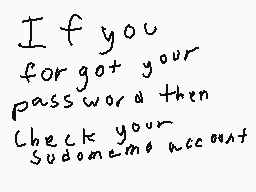 If you
forgot your
password then
check your
Sudomemo account